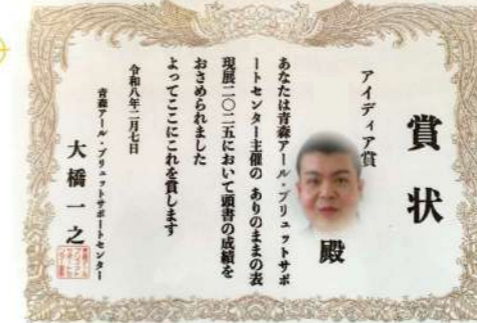 賞状
アイディア賞
殿
あなたは青森アール・ブリュットサポ
ートセンター主催の ありのままの表
現展二〇二五において頭書の成績を
おさめられました
よってここにこれを賞します
令和八年二月七日
青森アール・ブリュットサポートセンター
大橋 一之